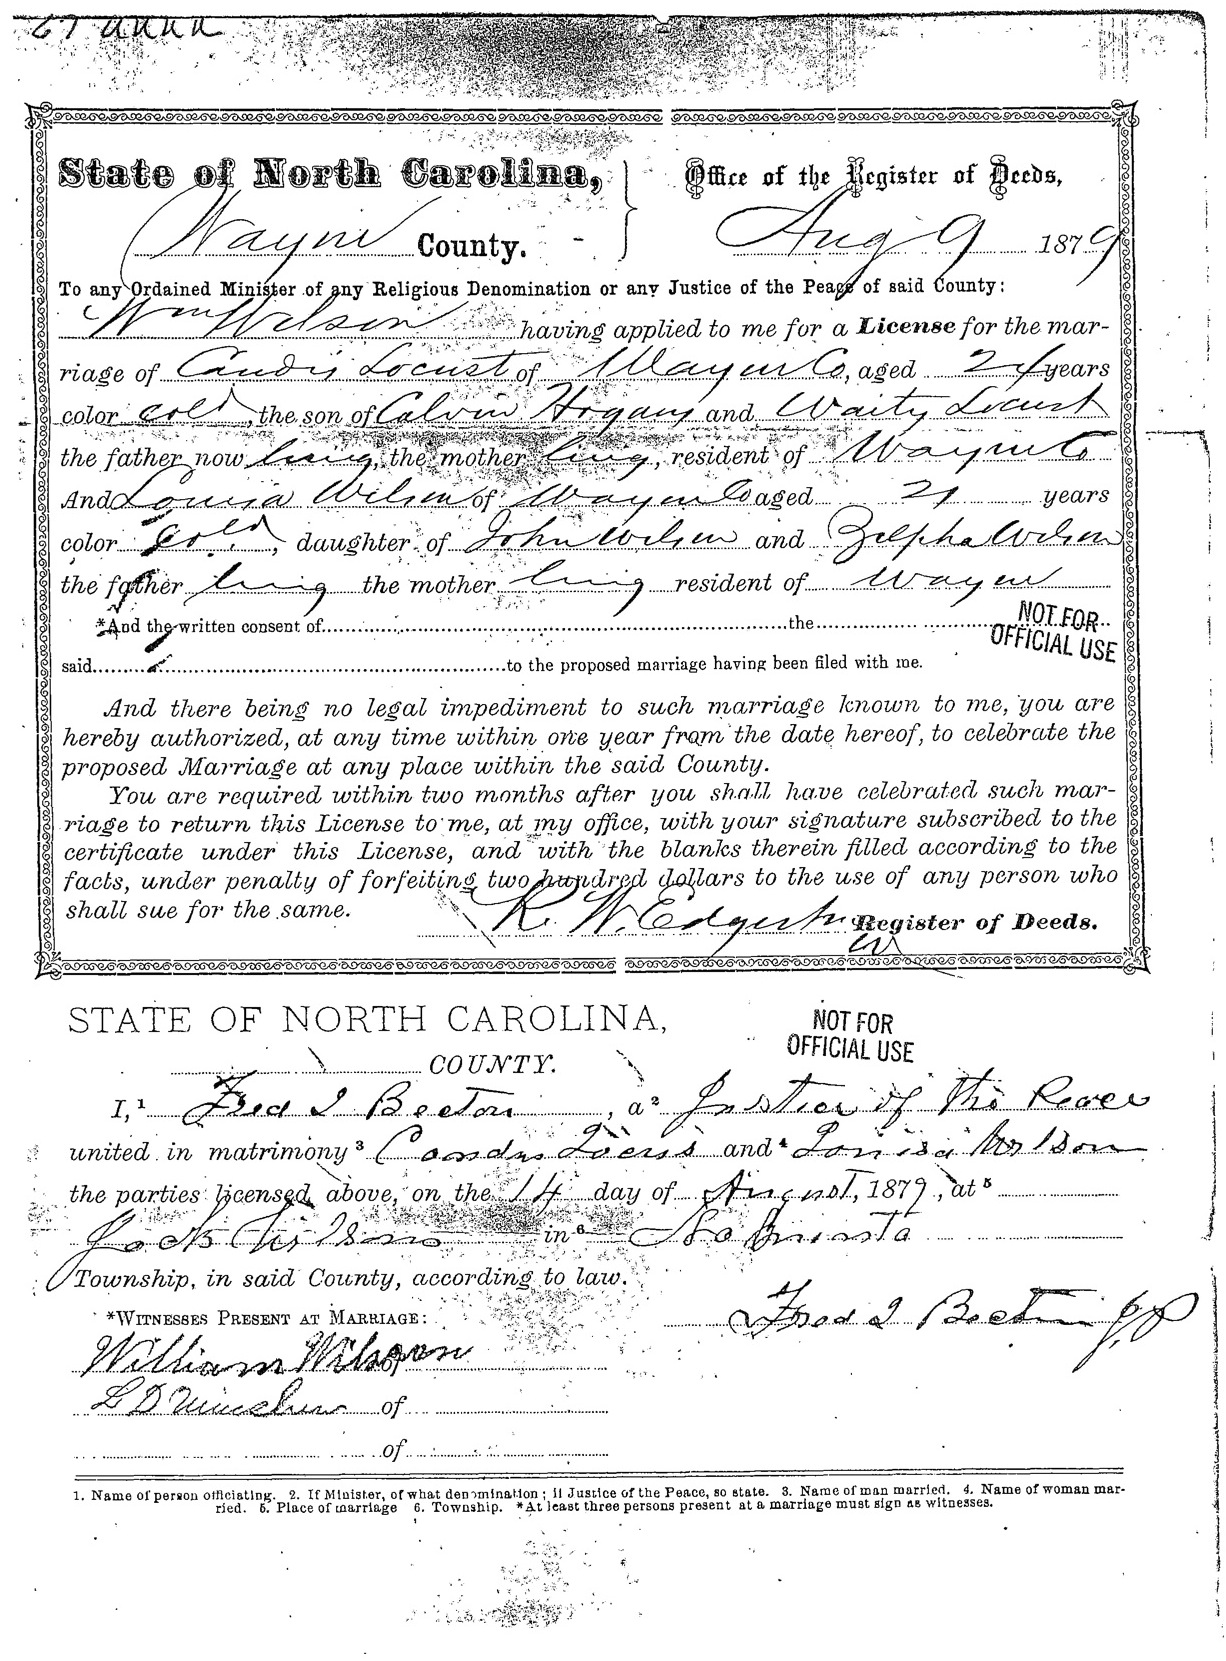 State of North Carolina, Office of the Register of Deeds,
Wayne County. Aug 9 1879
To any Ordained Minister of any Religious Denomination or any Justice of the Peace of said County:
Wm Wilson having applied to me for a License for the mar-
riage of Candis Locust of Wayne Co, aged 24 years
color cold, the son of Calvin Hogans and Waity Locust
the father now living, the mother living, resident of Wayne Co
And Louisa Wilson of Wayne Co aged 21 years
color cold, daughter of John Wilson and Zelpha Wilson
the father living the mother living resident of Wayne
*And the written consent of the
NOT FOR OFFICIAL USE
said to the proposed marriage having been filed with me.
And there being no legal impediment to such marriage known to me, you are
hereby authorized, at any time within one year from the date hereof, to celebrate the
proposed Marriage at any place within the said County.
You are required within two months after you shall have celebrated such mar-
riage to return this License to me, at my office, with your signature subscribed to the
certificate under this License, and with the blanks therein filled according to the
facts, under penalty of forfeiting two hundred dollars to the use of any person who
shall sue for the same.
R. W. Edgerton Register of Deeds.
STATE OF NORTH CAROLINA,
NOT FOR OFFICIAL USE
COUNTY.
I,¹ Fred I Becton, a² Justice of the Peace
united in matrimony³ Candis Locus and⁴ Louisa Wilson
the parties licensed above, on the 14 day of August, 1879, at⁵
Jack Wilsons in⁶ Nahunta
Township, in said County, according to law.
*WITNESSES PRESENT AT MARRIAGE: Fred I Becton J.P
William Wilson
L D Minshew of
of
1. Name of person officiating. 2. If Minister, of what denomination; if Justice of the Peace, so state. 3. Name of man married. 4. Name of woman mar-
ried. 5. Place of marriage 6. Township. *At least three persons present at a marriage must sign as witnesses.